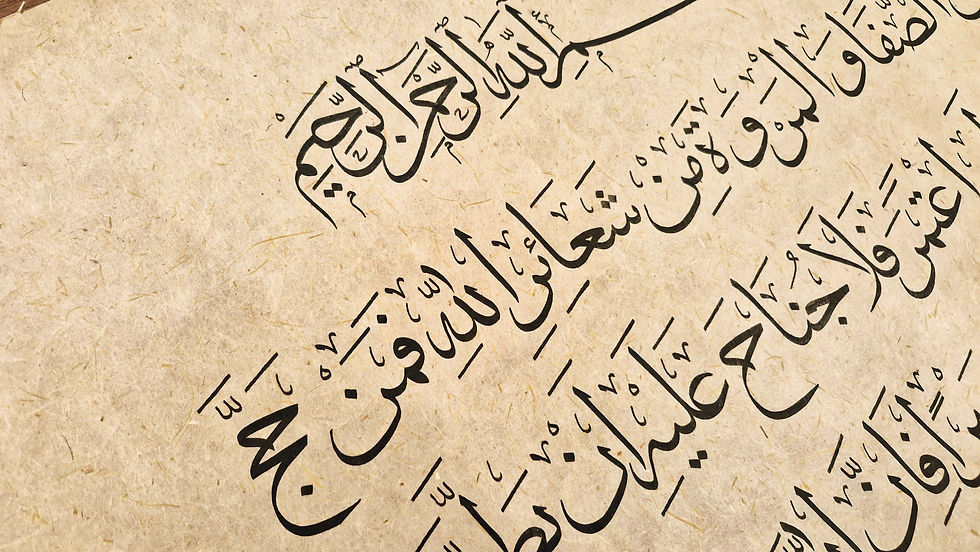 بِسْمِ اللّٰهِ الرَّحْمٰنِ الرَّحِيْمِ
الصَّفَا وَالْمَرْوَةَ مِنْ شَعَائِرِ اللّٰهِ فَمَنْ حَجَّ
اعْتَمَرَ فَلَا جُنَاحَ عَلَيْهِ اَنْ
فَاِنَّ اللّٰهَ